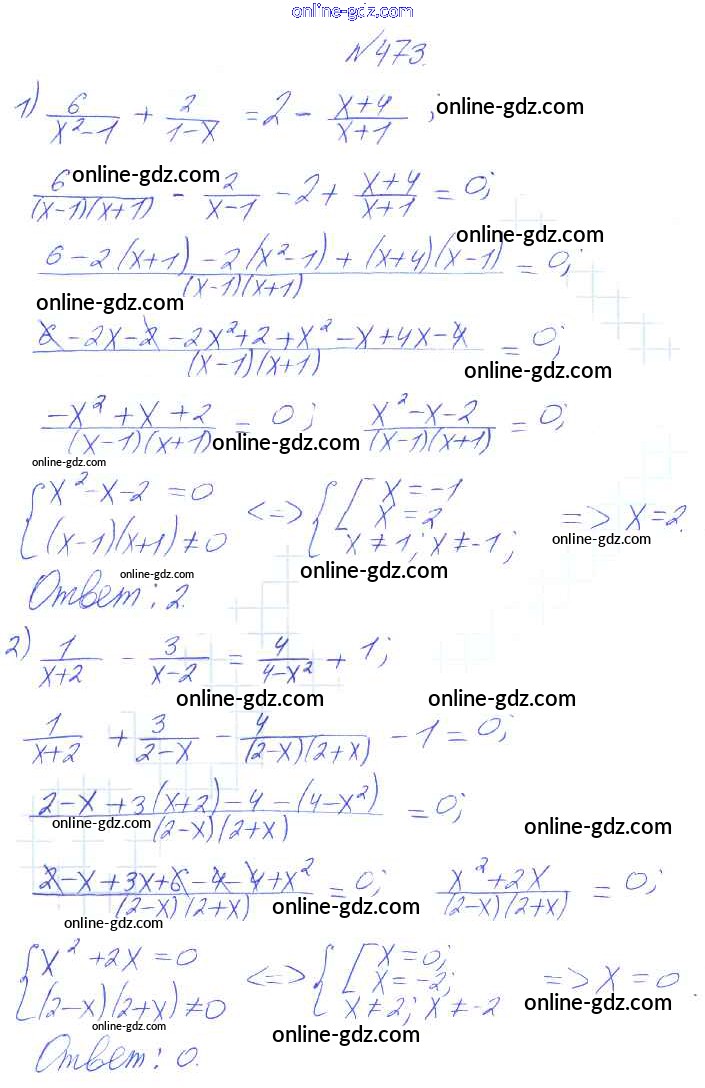 online-gdz.com
№473.
1) 6/(x²-1) + 2/(1-x) = 2 - (x+4)/(x+1) ; online-gdz.com
online-gdz.com
6/((x-1)(x+1)) - 2/(x-1) - 2 + (x+4)/(x+1) = 0;
online-gdz.com
(6-2(x+1)-2(x²-1)+(x+4)(x-1))/((x-1)(x+1)) = 0;
online-gdz.com
(6-2x-2-2x²+2+x²-x+4x-4)/((x-1)(x+1)) = 0;
online-gdz.com
(-x²+x+2)/((x-1)(x+1)) = 0; (x²-x-2)/((x-1)(x+1)) = 0;
online-gdz.com
online-gdz.com
{ x²-x-2=0 <=> { [ x=-1
x=2
(x-1)(x+1)≠0 x≠1; x≠-1; => x=2.
online-gdz.com
online-gdz.com online-gdz.com
Ответ: 2.
2) 1/(x+2) - 3/(x-2) = 4/(4-x²) + 1;
online-gdz.com online-gdz.com
1/(x+2) + 3/(2-x) - 4/((2-x)(2+x)) - 1 = 0;
(2-x+3(x+2)-4-(4-x²))/((2-x)(2+x)) = 0;
online-gdz.com online-gdz.com
(2-x+3x+6-4-4+x²)/((2-x)(2+x)) = 0; (x²+2x)/((2-x)(2+x)) = 0;
online-gdz.com online-gdz.com
{ x²+2x=0 <=> { [ x=0;
x=-2; => x=0.
(2-x)(2+x)≠0 x≠2; x≠-2
online-gdz.com online-gdz.com
online-gdz.com
Ответ: 0.